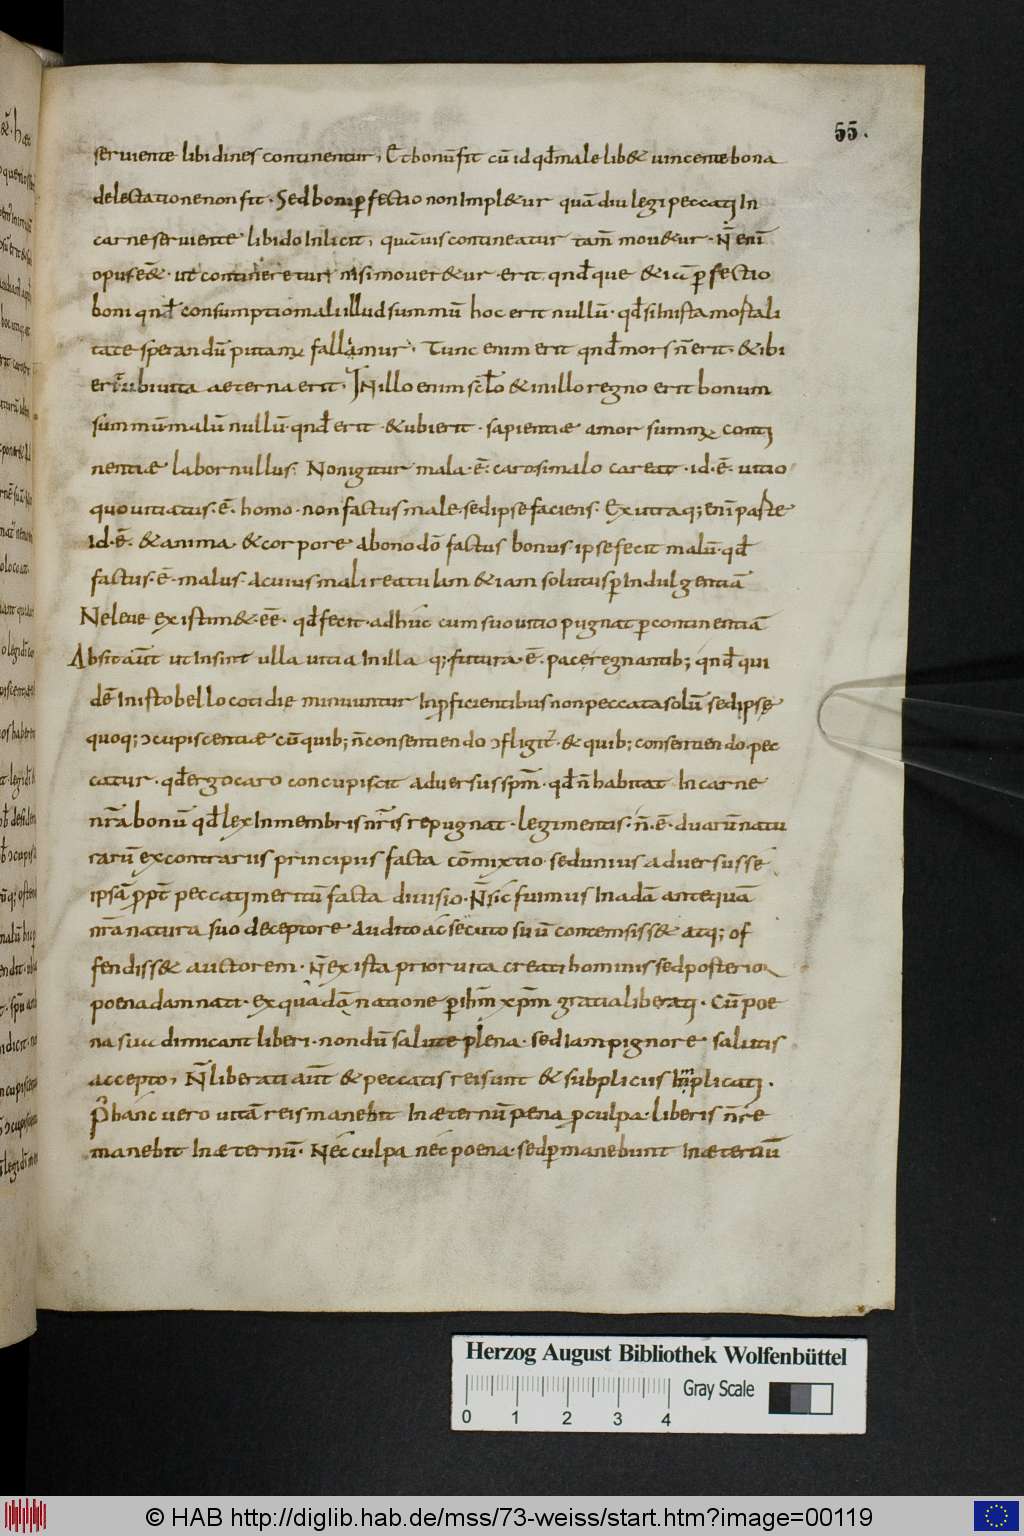 55.
seruiente libidines continentur, Et bonū fit cū id qđ male lib& uincente bona
delectatione non fit · Sed boni ꝑfectio non Impl&ur quādiu legi peccati In
carne seruiente libido Inlicit, quāuis contineatur tam̄ mou&ur · N̄ enī
opus e&̄ · ut contineretur nisi mouer&ur · erit qnđque & iā ꝑfectio
boni qnđ consumptio mali illud summū hoc erit nullū · qđ si In ista mortali
tate sperandū putamꝰ fallamur · Tunc enim erit qnđ mors n̄ erit · & ibi
erit ubi uita aeterna erit · In illo enim sc̄lo & in illo regno erit bonum
summū malū nullū · qnđ erit · & ubi erit · sapientiæ amor summꝰ conti
nentiæ labor nullus · Non igitur mala · ē · caro si malo careat · id · ē · uitio
quo uitiatus · ē · homo · non factus male · sed ipse faciens · Ex utraq; enī parte
Id · ē · & anima & corpore a bono dō factus bonus ipse fecit malū · qđ
factus · ē · malus · A cuius mali reatu lam & iam solutus ꝑ Indulgentiā
Ne leue existim& · eē · qđ fecit · adhuc cum suo uitio pugnat ꝑ continentiā
Absit aūt ut Insint ulla uitia In illa q; futura · ē · pace regnantib; qnđ qui
dē In isto bello cotidie minuuntur In ꝓficientibus non peccata solū sed ipse
quoq; ɔcupiscentiæ cū quib; n̄ consentiendo ɔfligit̄ · & quib; consentiendo · pec
catur · qđ ergo caro concupiscit aduersus sp̄m · qđ n̄ habitat In carne
nr̄a bonū qđ lex In membris nr̄is repugnat · legi mentis · n̄ · ē · duarū natu
rarū ex contrariis principiis facta cōmixtio · sed unius aduersus se
ipsā ꝓpt̄ peccati meritū facta diuisio · N̄ sic fuimus In adā antequā
nr̄a natura suo deceptore audito ac secuto suū contemsiss& atq; of
fendiss& auctorem · N̄ ex ista prior uita creati hominis sed posterior
poena damnati · ex qua dānatione ꝑ ih̄m xp̄m gratia liberati · Cū poe
na sua dimicant liberi · nondū salute plena · sed Iam pignore salutis
accepto, N̄ liberati aūt & peccatis rei sunt & subpliciis Implicati ·
P̄ hanc uero uitā reis manebit In æternū pena ꝓ culpa · liberis n̄ re
manebit In æternū · Nec culpa nec poena · sed ꝑmanebunt In æternū
Herzog August Bibliothek Wolfenbüttel
Gray Scale
0 1 2 3 4
© HAB http://diglib.hab.de/mss/73-weiss/start.htm?image=00119